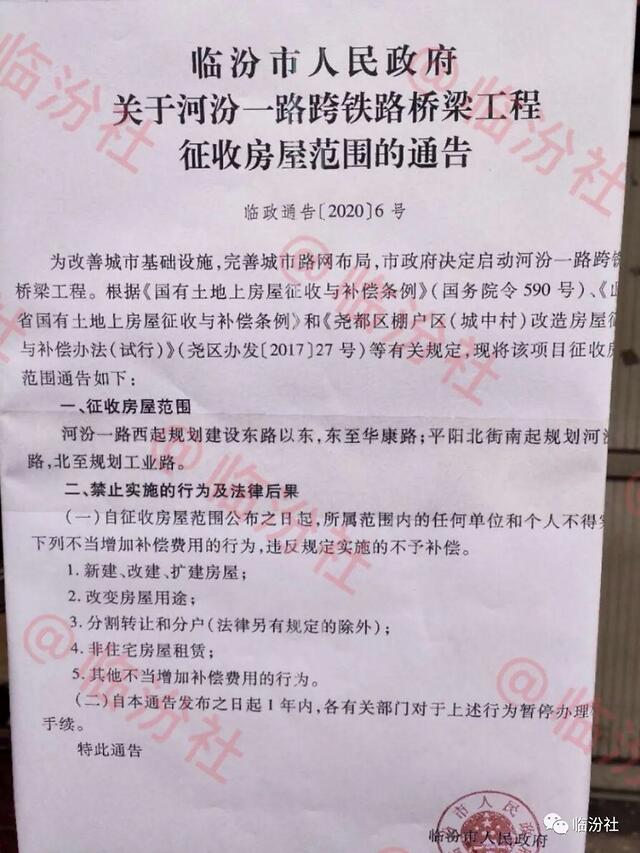 临汾市人民政府
关于河汾一路跨铁路桥梁工程
征收房屋范围的通告
临政通告〔2020〕6号
为改善城市基础设施,完善城市路网布局,市政府决定启动河汾一路跨铁
桥梁工程。根据《国有土地上房屋征收与补偿条例》(国务院令590号)、《山
省国有土地上房屋征收与补偿条例》和《尧都区棚户区(城中村)改造房屋征
与补偿办法(试行)》(尧区办发〔2017〕27号)等有关规定,现将该项目征收房
范围通告如下:
一、征收房屋范围
河汾一路西起规划建设东路以东,东至华康路;平阳北街南起规划河汾
路,北至规划工业路。
二、禁止实施的行为及法律后果
(一)自征收房屋范围公布之日起,所属范围内的任何单位和个人不得实
下列不当增加补偿费用的行为,违反规定实施的不予补偿。
1.新建、改建、扩建房屋;
2.改变房屋用途;
3.分割转让和分户(法律另有规定的除外);
4.非住宅房屋租赁;
5.其他不当增加补偿费用的行为。
(二)自本通告发布之日起1年内,各有关部门对于上述行为暂停办理
手续。
特此通告
临汾市人民政府
市人民政
临汾社
@临汾社
@临汾社
@临汾社
@临汾社
@临汾社
@临汾社
临汾社